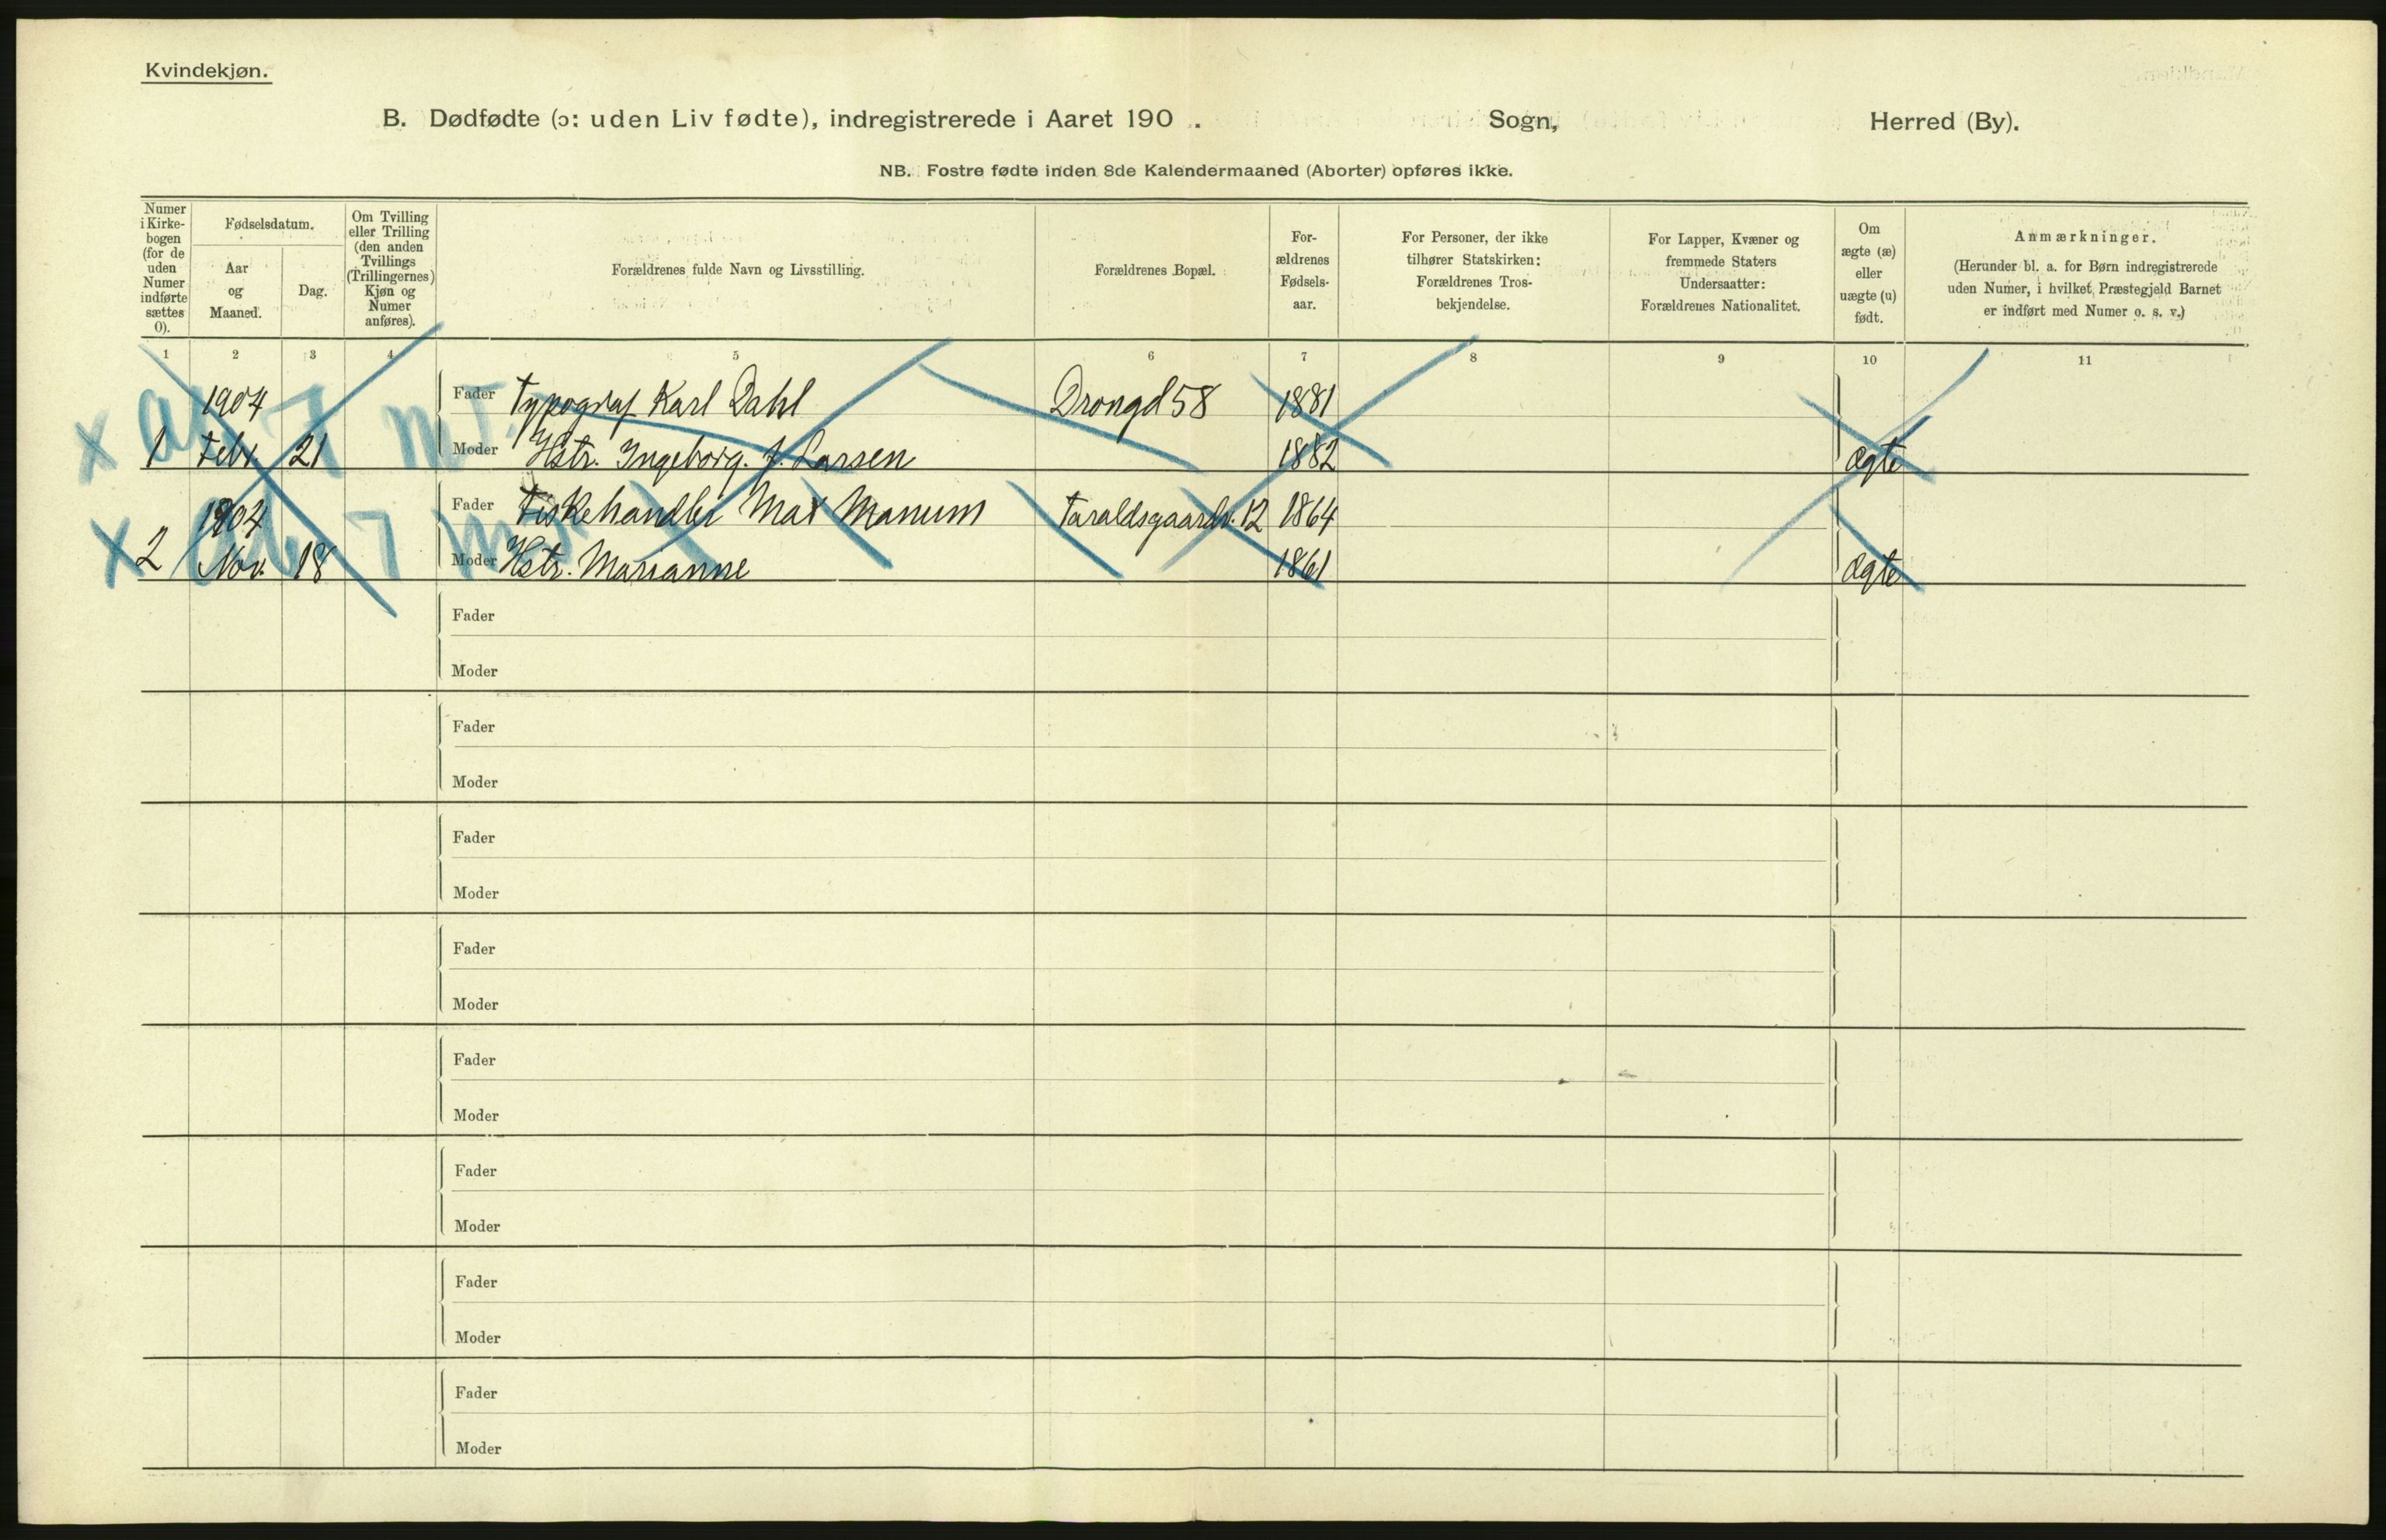 Kvindekjøn.
B. Dødfødte (ɔ: uden Liv fødte), indregistrerede i Aaret 190 . Sogn, Herred (By).
NB. Fostre fødte inden 8de Kalendermaaned (Aborter) opføres ikke.
Numer
i Kirke-
bogen
(for de
uden
Numer
indførte
sættes
0).
Fødselsdatum.
Aar
og
Maaned.
Dag.
Om Tvilling
eller Trilling
(den anden
Tvillings
(Trillingernes)
Kjøn og
Numer
anføres).
Forældrenes fulde Navn og Livsstilling.
Forældrenes Bopæl.
For-
ældrenes
Fødsels-
aar.
For Personer, der ikke
tilhører Statskirken:
Forældrenes Tros-
bekjendelse.
For Lapper, Kvæner og
fremmede Staters
Undersaatter:
Forældrenes Nationalitet.
Om
ægte (æ)
eller
uægte (u)
født.
Anmærkninger.
(Herunder bl. a. for Børn indregistrerede
uden Numer, i hvilket Præstegjeld Barnet
er indført med Numer o. s. v.)
1 2 3 4 5 6 7 8 9 10 11
1904 Fader Typograf Karl Dahl Drongd 58 1881
x 1 Febr. 21 Moder Hstr. Ingeborg. f. Larsen 1882 Ægte
1904 Fader Fiskehandler Max Manum Taraldsgaardv. 12 1864
x 2 Nov. 18 Moder Hstr. Marianne 1861 Ægte
Fader
Moder
Fader
Moder
Fader
Moder
Fader
Moder
Fader
Moder
Fader
Moder
Fader
Moder
Fader
Moder